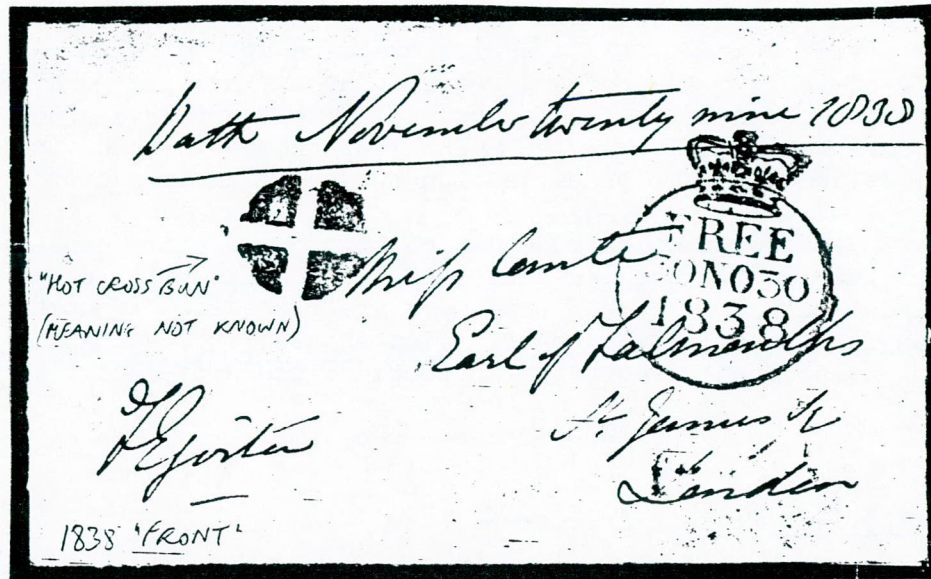 Bath November twenty nine 1838
FREE
30NO30
1838
"HOT CROSS BUN"
(MEANING NOT KNOWN)
Miss
Earl of Falmouths
St. James Sq
London
1838 "FRONT"